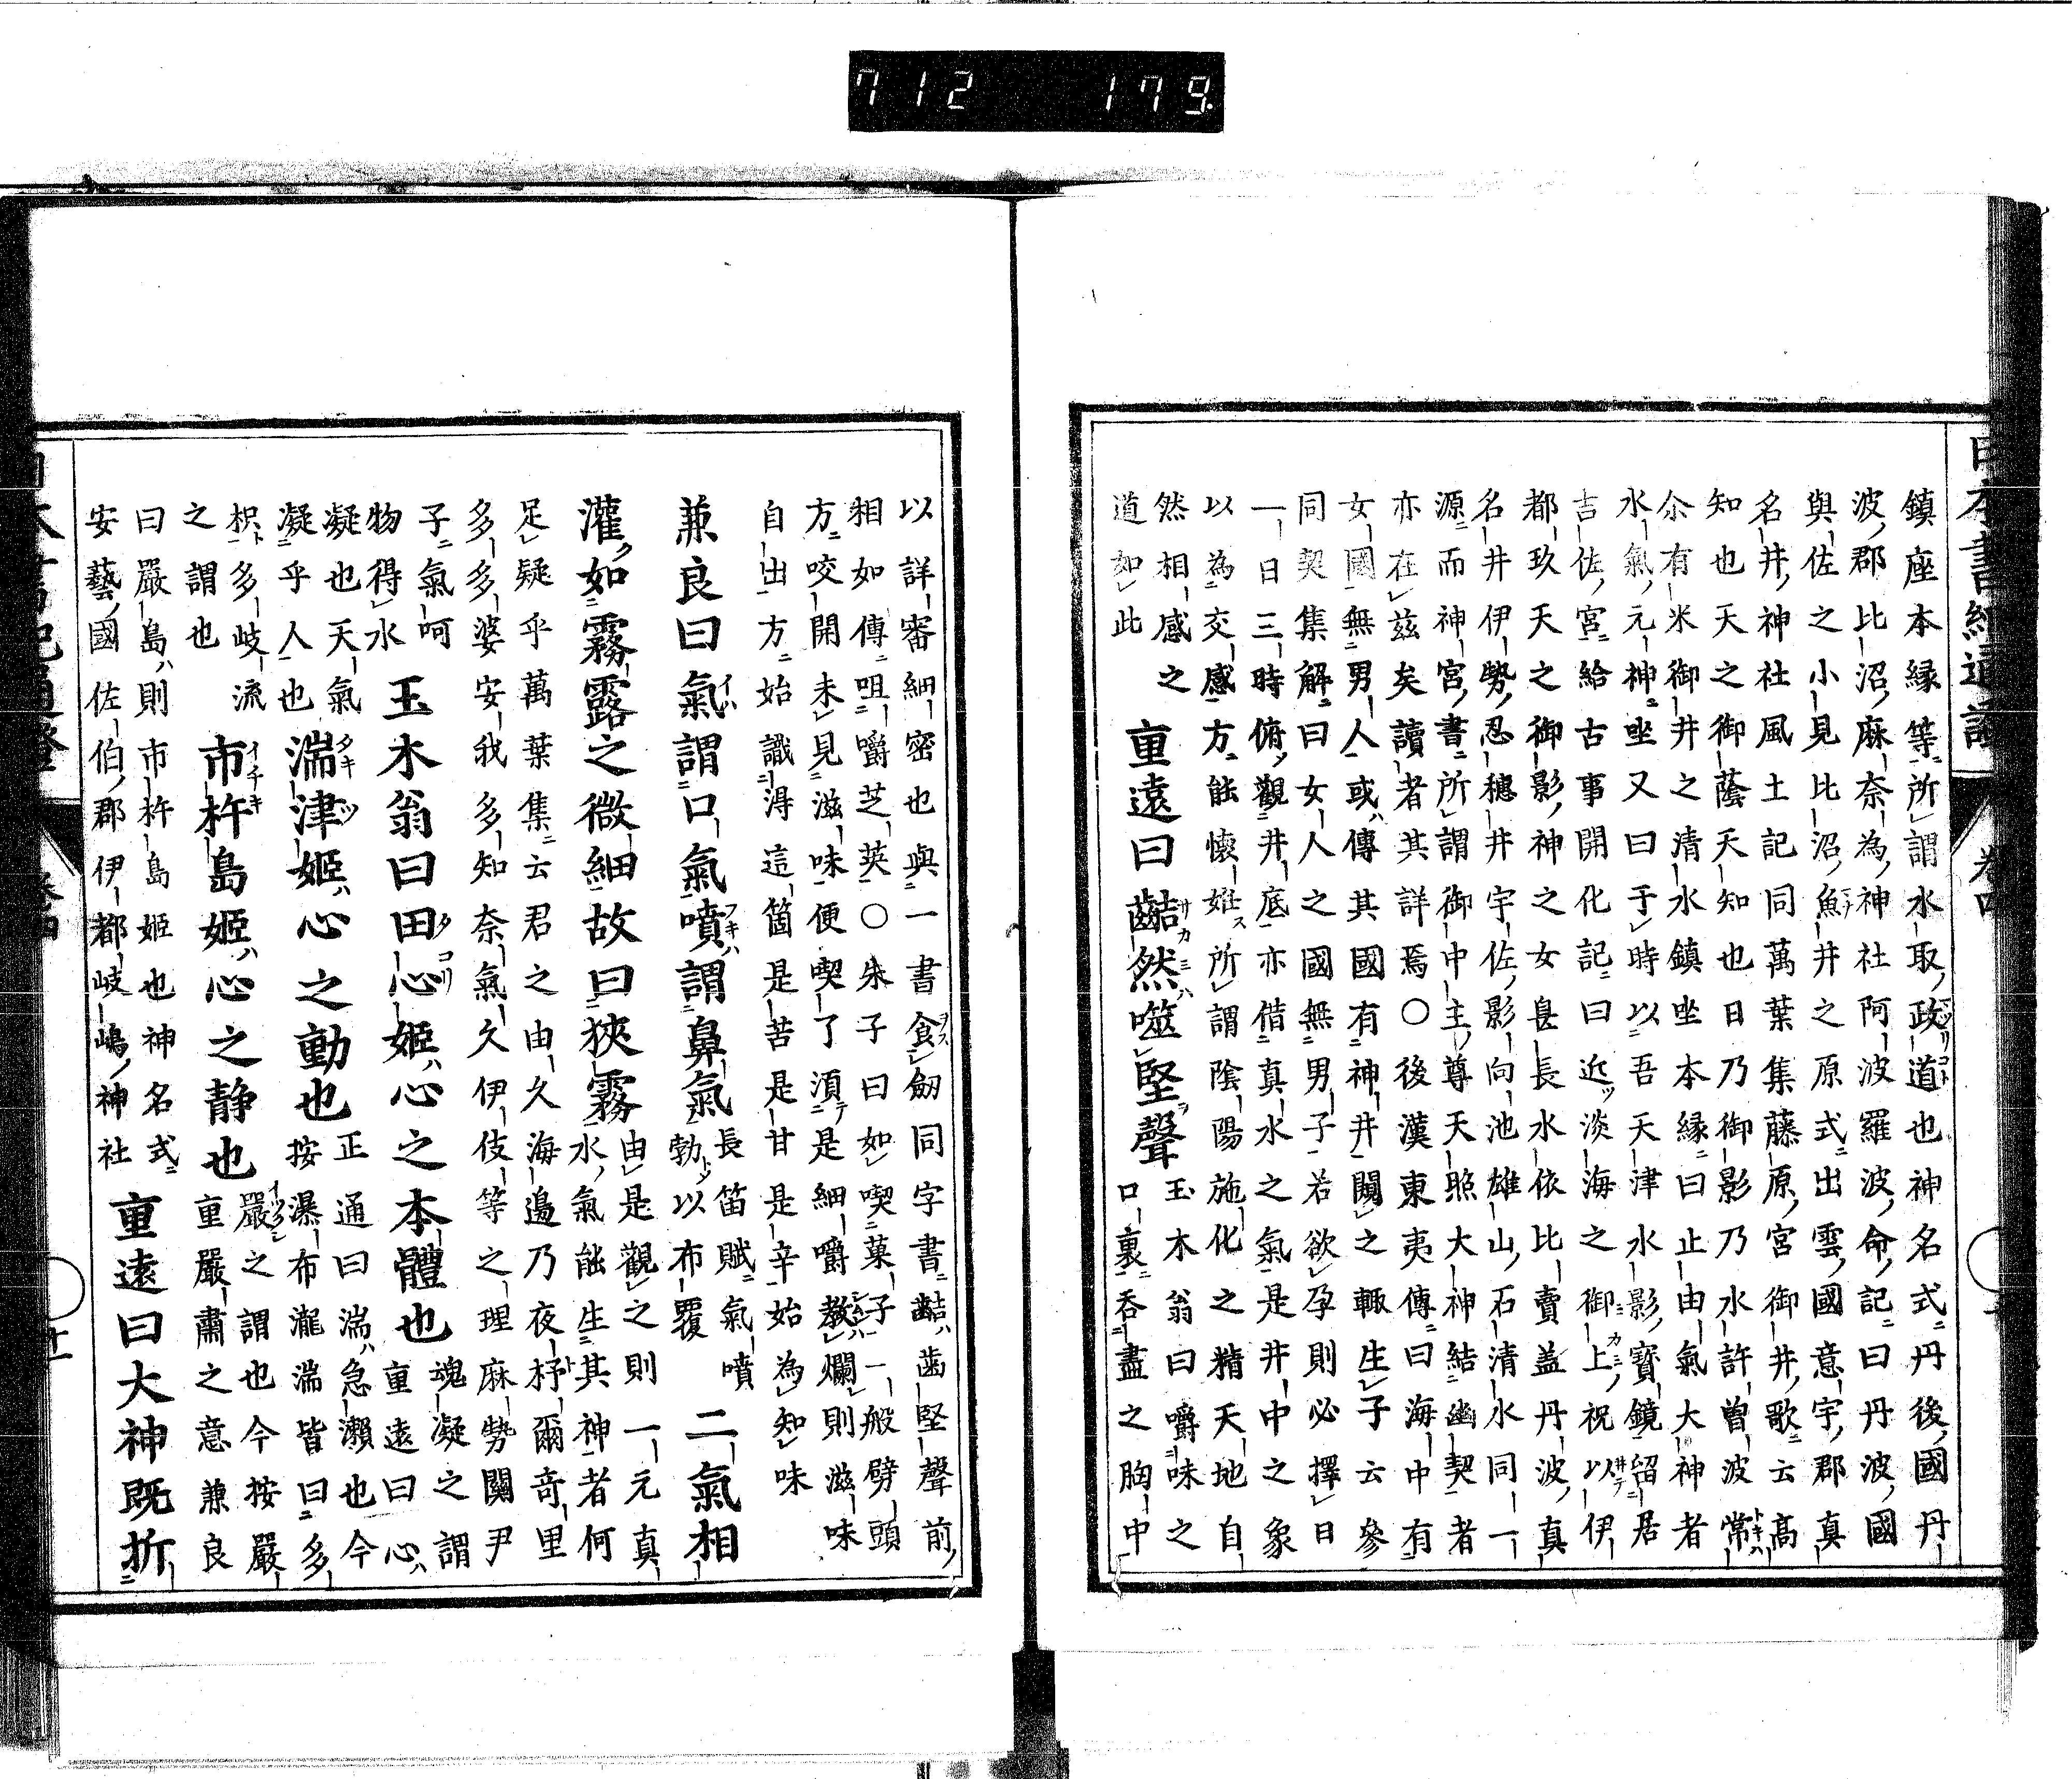 日本書紀通證
卷四
鎮座本縁等所謂水取政道也神名式丹後國丹
波郡比沼麻奈為神社阿波羅波命記曰丹波國
與佐之小見比沼魚井之原式出雲國意宇郡真
名井神社風土記同萬葉集藤原宮御井歌云髙
知也天之御蔭天知也日乃御影乃水許曽波常
尒有米御井之清水鎮坐本縁曰止由氣大神者
水氣元神坐又曰于時以吾天津水影寳鏡留居
吉佐宮給古事開化記曰近淡海之御上祝以伊
都玖天之御影神之女息長水依比賣盖丹波真
名井伊勢忍穗井宇佐影向池雄山石清水同一
源而神宮書所謂御中主尊天照大神結幽契者
亦在茲矣讀者其詳焉〇後漢東夷傳曰海中有
女國無男人或傳其國有神井闚之輙生子云參
同契集解曰女人之國無男子若欲孕則必擇日
一日三時俯觀井底亦借真水之氣是井中之象
以為交感方能懷姙所謂陰陽施化之精天地自
然相感之
道如此
重遠曰䶜然噬堅聲
玉木翁曰嚼味之
口裏呑盡之胸中
以詳審細密也與一書食劒同字書䶜齒堅聲前
相如傳咀嚼芝英〇朱子曰如喫菓子一般劈頭
方咬開未見滋味便喫了湏是細嚼教爛則滋味
自出方始識淂這箇是苦是甘是辛始為知味
兼良曰氣謂口氣噴謂鼻氣
長笛賦氣噴
勃以布覆
二氣相
灌如霧露之微細故曰狹霧
由是觀之則一元真
水氣能生其神者何
足疑乎萬葉集云君之由久海邊乃夜杼爾奇里
多多婆安我多知奈氣久伊伎等之理麻勢關尹
子氣呵
物得水
玉木翁曰田心姬心之本體也
魂凝之謂
重遠曰心
凝也天氣
凝乎人也
湍津姬心之動也
正通曰湍急瀬也今
按瀑布瀧湍皆曰多
枳多岐流
之謂也
市杵島姬心之静也
嚴之謂也今按嚴
重嚴肅之意兼良
曰嚴島則市杵島姬也神名式
安藝國佐伯郡伊都岐嶋神社
重遠曰大神既折
卷四
十一
712 179